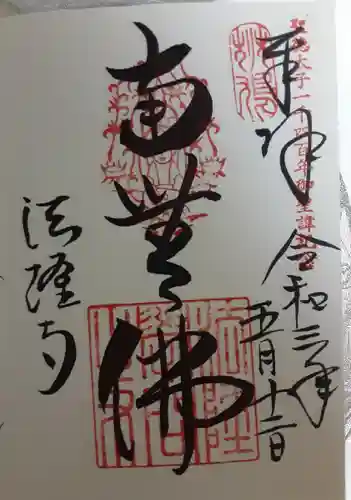 奉拝 令和三年
五月十二日
聖徳太子一千四百年御聖諱
南無佛
法隆寺